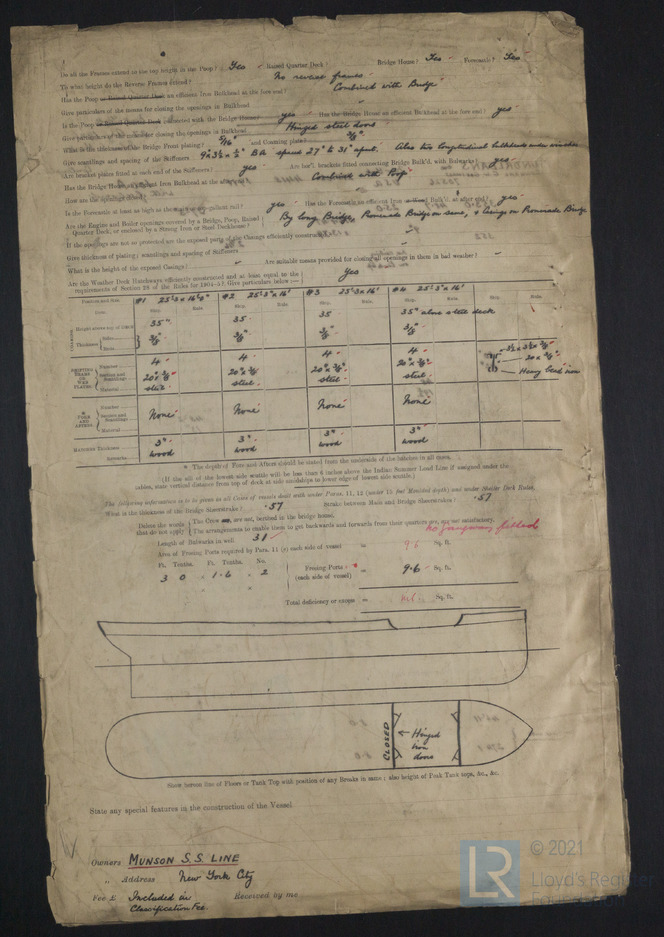 Do all the Frames extend to the top height in the Poop? Yes Raised Quarter Deck? Bridge House? Yes Forecastle? Yes
To what height do the Reverse Frames extend? No reverse frames
Has the Poop or Raised Quarter Deck an efficient Iron Bulkhead at the fore end? Combined with Bridge
Give particulars of the means for closing the openings in Bulkhead
Is the Poop or Raised Quarter Deck connected with the Bridge House? yes Has the Bridge House an efficient Bulkhead at the fore end? yes
Give particulars of the means for closing the openings in Bulkhead Hinged steel doors
What is the thickness of the Bridge Front plating? 5/16" and Coaming plate? 3/8"
Give scantlings and spacing of the Stiffeners 9 x 3½ x ½" BA spaced 27" to 31" apart. Also two longitudinal bulkheads
Are bracket plates fitted at each end of the Stiffeners? yes Are brackets fitted connecting Bridge Bulk'd. with Bulwarks? yes
Has the Bridge House Iron Bulkhead at the Combined with Poop
How are the openings
Is the Forecastle at least as high as the rail? yes Has the Forecastle an efficient Iron Bulk'd. at after end? yes
Are the Engine and Boiler openings covered by a Bridge, Poop, Raised Quarter Deck, or enclosed by a Strong Iron or Steel Deckhouse? By long Bridge, Promenade Bridge on same, & Casings on Promenade Bridge
If the openings are not so protected are the exposed parts of the Casings efficiently constructed
Give thickness of plating; scantlings and spacing of Stiffeners
What is the height of the exposed Casings? Are suitable means provided for closing all openings in them in bad weather?
Are the Weather Deck Hatchways efficiently constructed and at least equal to the requirements of Section 28 of the Rules for 1904-5? Give particulars below:— Yes
Position and Size #1 25'-3" x 16'-8" #2 25'-3" x 16' #3 25'-3" x 16' #4 25'-3" x 16'
Item. Ship. Rule. Ship. Rule. Ship. Rule. Ship. Rule. Ship. Rule.
Height above top of Deck 35" 35" 35 35" above steel deck
Thickness Sides Ends 3/8" 3/8" 3/8" 3/8"
SHIFTING BEAMS OR WEB PLATES
Number 4 4 4 4 3½ x 3½ x 3/8"
Section and Scantlings 20" x 3/8 20 x 3/8 20" x 3/8 20" x 3/8 20 x 3/8"
Material steel steel steel steel Heavy bead iron
* FORE AND AFTERS
Number
Section and Scantlings None None None None
Material
HATCHES Thickness 3" 3" 3" 3"
Remarks wood wood wood wood
* The depth of Fore-and-Afters should be stated from the underside of the hatches in all cases.
(If the sill of the lowest side scuttle will be less than 6 inches above the Indian Summer Load Line if assigned under the
tables, state vertical distance from top of deck at side amidships to lower edge of lowest side scuttle.)
The following information is to be given in all Cases of vessels dealt with under Paras. 11, 12 (under 15 feet Moulded depth) and under Shelter Deck Rules.
What is the thickness of the Bridge Sheerstrake? .57 Strake between Main and Bridge Sheerstrakes? .57
Delete the words that do not apply { The Crew are, are not, berthed in the bridge house.
The arrangements to enable them to get backwards and forwards from their quarters are, are not satisfactory. no gangways fitted
Length of Bulwarks in well 31
Area of Freeing Ports required by Para. 11 (e) each side of vessel = 9.6 Sq. ft.
Ft. Tenths. Ft. Tenths. No.
3 0 x 1.6 x 2
Freeing Ports (each side of vessel) = 9.6 Sq. ft.
Total deficiency or excess = nil Sq. ft.
CLOSED
← Hinged
iron
doors
Show hereon line of Floors or Tank Top with position of any Breaks in same; also height of Peak Tank tops, &c., &c.
State any special features in the construction of the Vessel
Owners MUNSON S.S. LINE
„ Address New York City
Fee £ Included in Received by me
Classification Fee.
LR
© 2021
Lloyd's Register